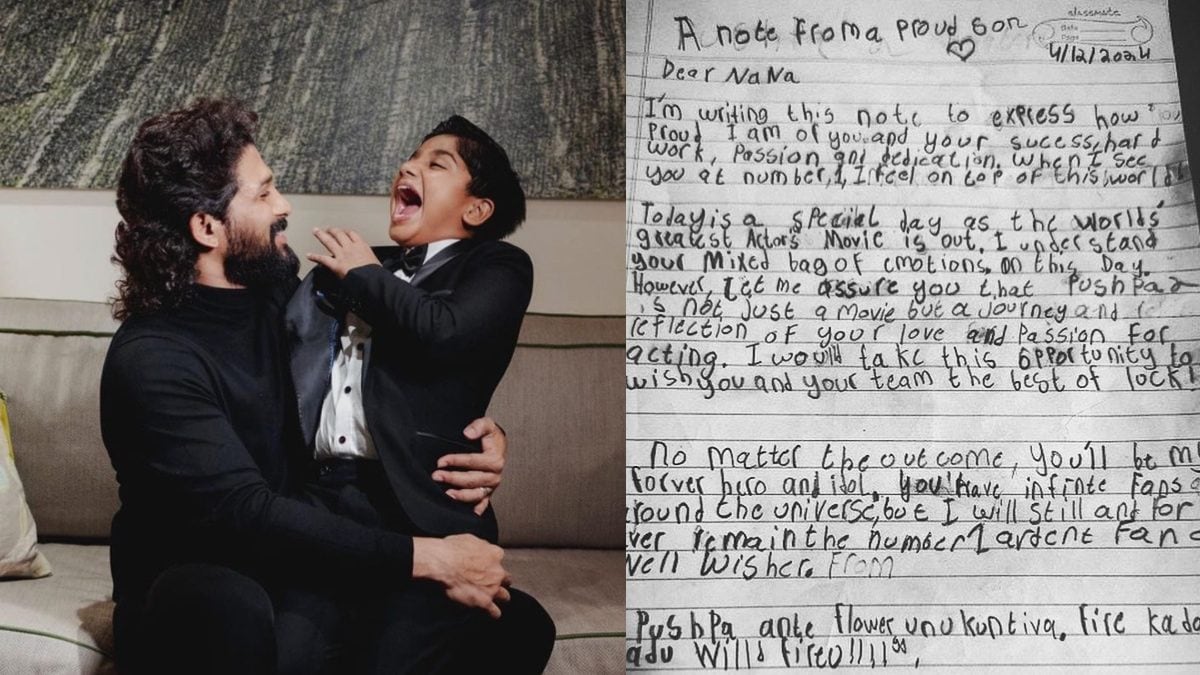 A note from a proud son
classmate
Date
Page
4/12/2024
Dear NaNa
I'm writing this note to express how
proud I am of you and your sucess, hard
work, Passion and dedication. when I see
you at number 1, I feel on top of this world
Today is a special day as the worlds'
greatest Actor's Movie is out. I understand
your Mixed bag of emotions on this Day.
However, let me assure you that Pushpa 2
is not just a movie but a Journey and
reflection of your love and Passion for
acting. I would take this opportunity to
wish you and your team the best of lock!
No matter the outcome, you'll be m
forver hero and idol. you have infinte Fans a
round the universe, but I will still and for
ver remain the number 1 ardent Fan a
well wisher. From
Pushpa ante flower unukuntiva. fire kada
adu Willd fireo!!!!",